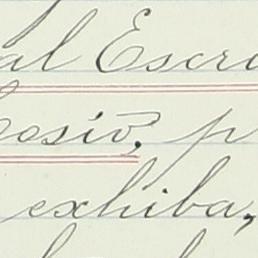 al Escri
cosio, p
exhiba,